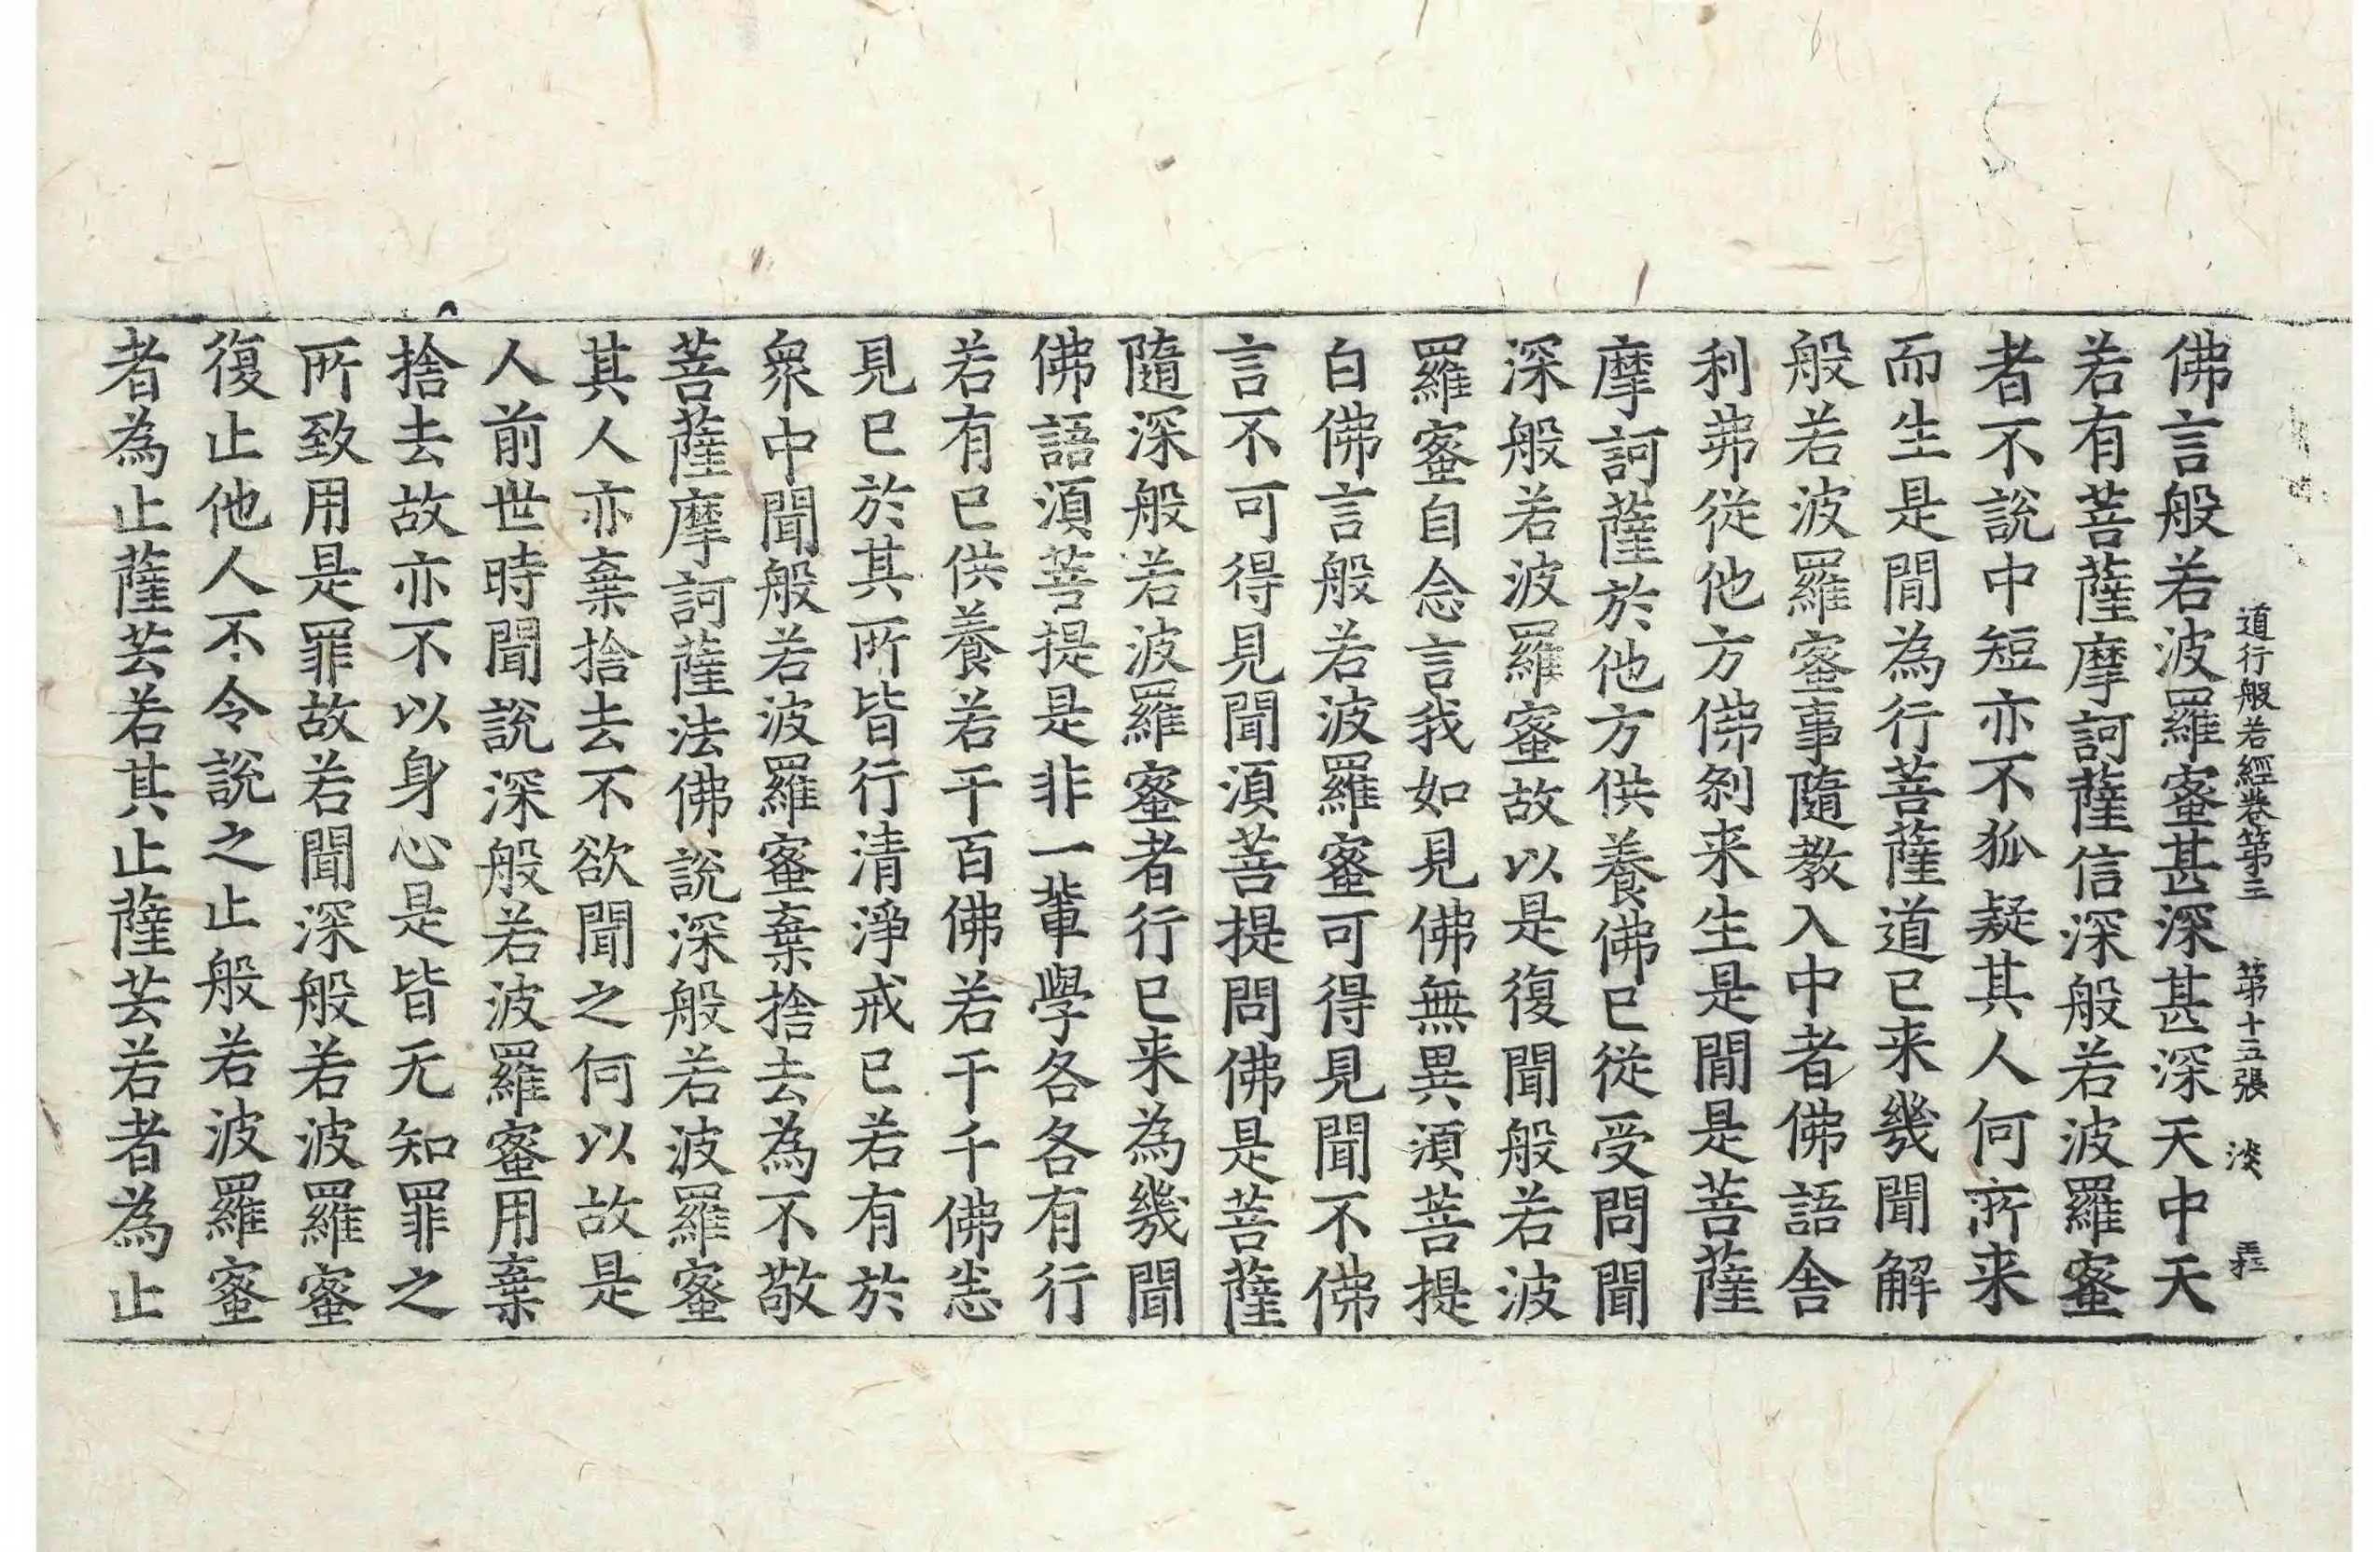 道行般若經卷第三 第十五張 淡
佛言般若波羅蜜甚深甚深天中天
若有菩薩摩訶薩信深般若波羅蜜
者不說中短亦不狐疑其人何所来
而生是閒為行菩薩道已来幾聞解
般若波羅蜜事隨教入中者佛語舍
利弗從他方佛剎来生是閒是菩薩
摩訶薩於他方供養佛已從受問聞
深般若波羅蜜故以是復聞般若波
羅蜜自念言我如見佛無異須菩提
白佛言般若波羅蜜可得見聞不佛
言不可得見聞須菩提問佛是菩薩
隨深般若波羅蜜者行已来為幾聞
佛語須菩提是非一輩學各各有行
若有已供養若干百佛若干千佛悉
見已於其所皆行清淨戒已若有於
衆中聞般若波羅蜜棄捨去為不敬
菩薩摩訶薩法佛說深般若波羅蜜
其人亦棄捨去不欲聞之何以故是
人前世時聞說深般若波羅蜜用棄
捨去故亦不以身心是皆无知罪之
所致用是罪故若聞深般若波羅蜜
復止他人不令說之止般若波羅蜜
者為止薩芸若其止薩芸若者為止